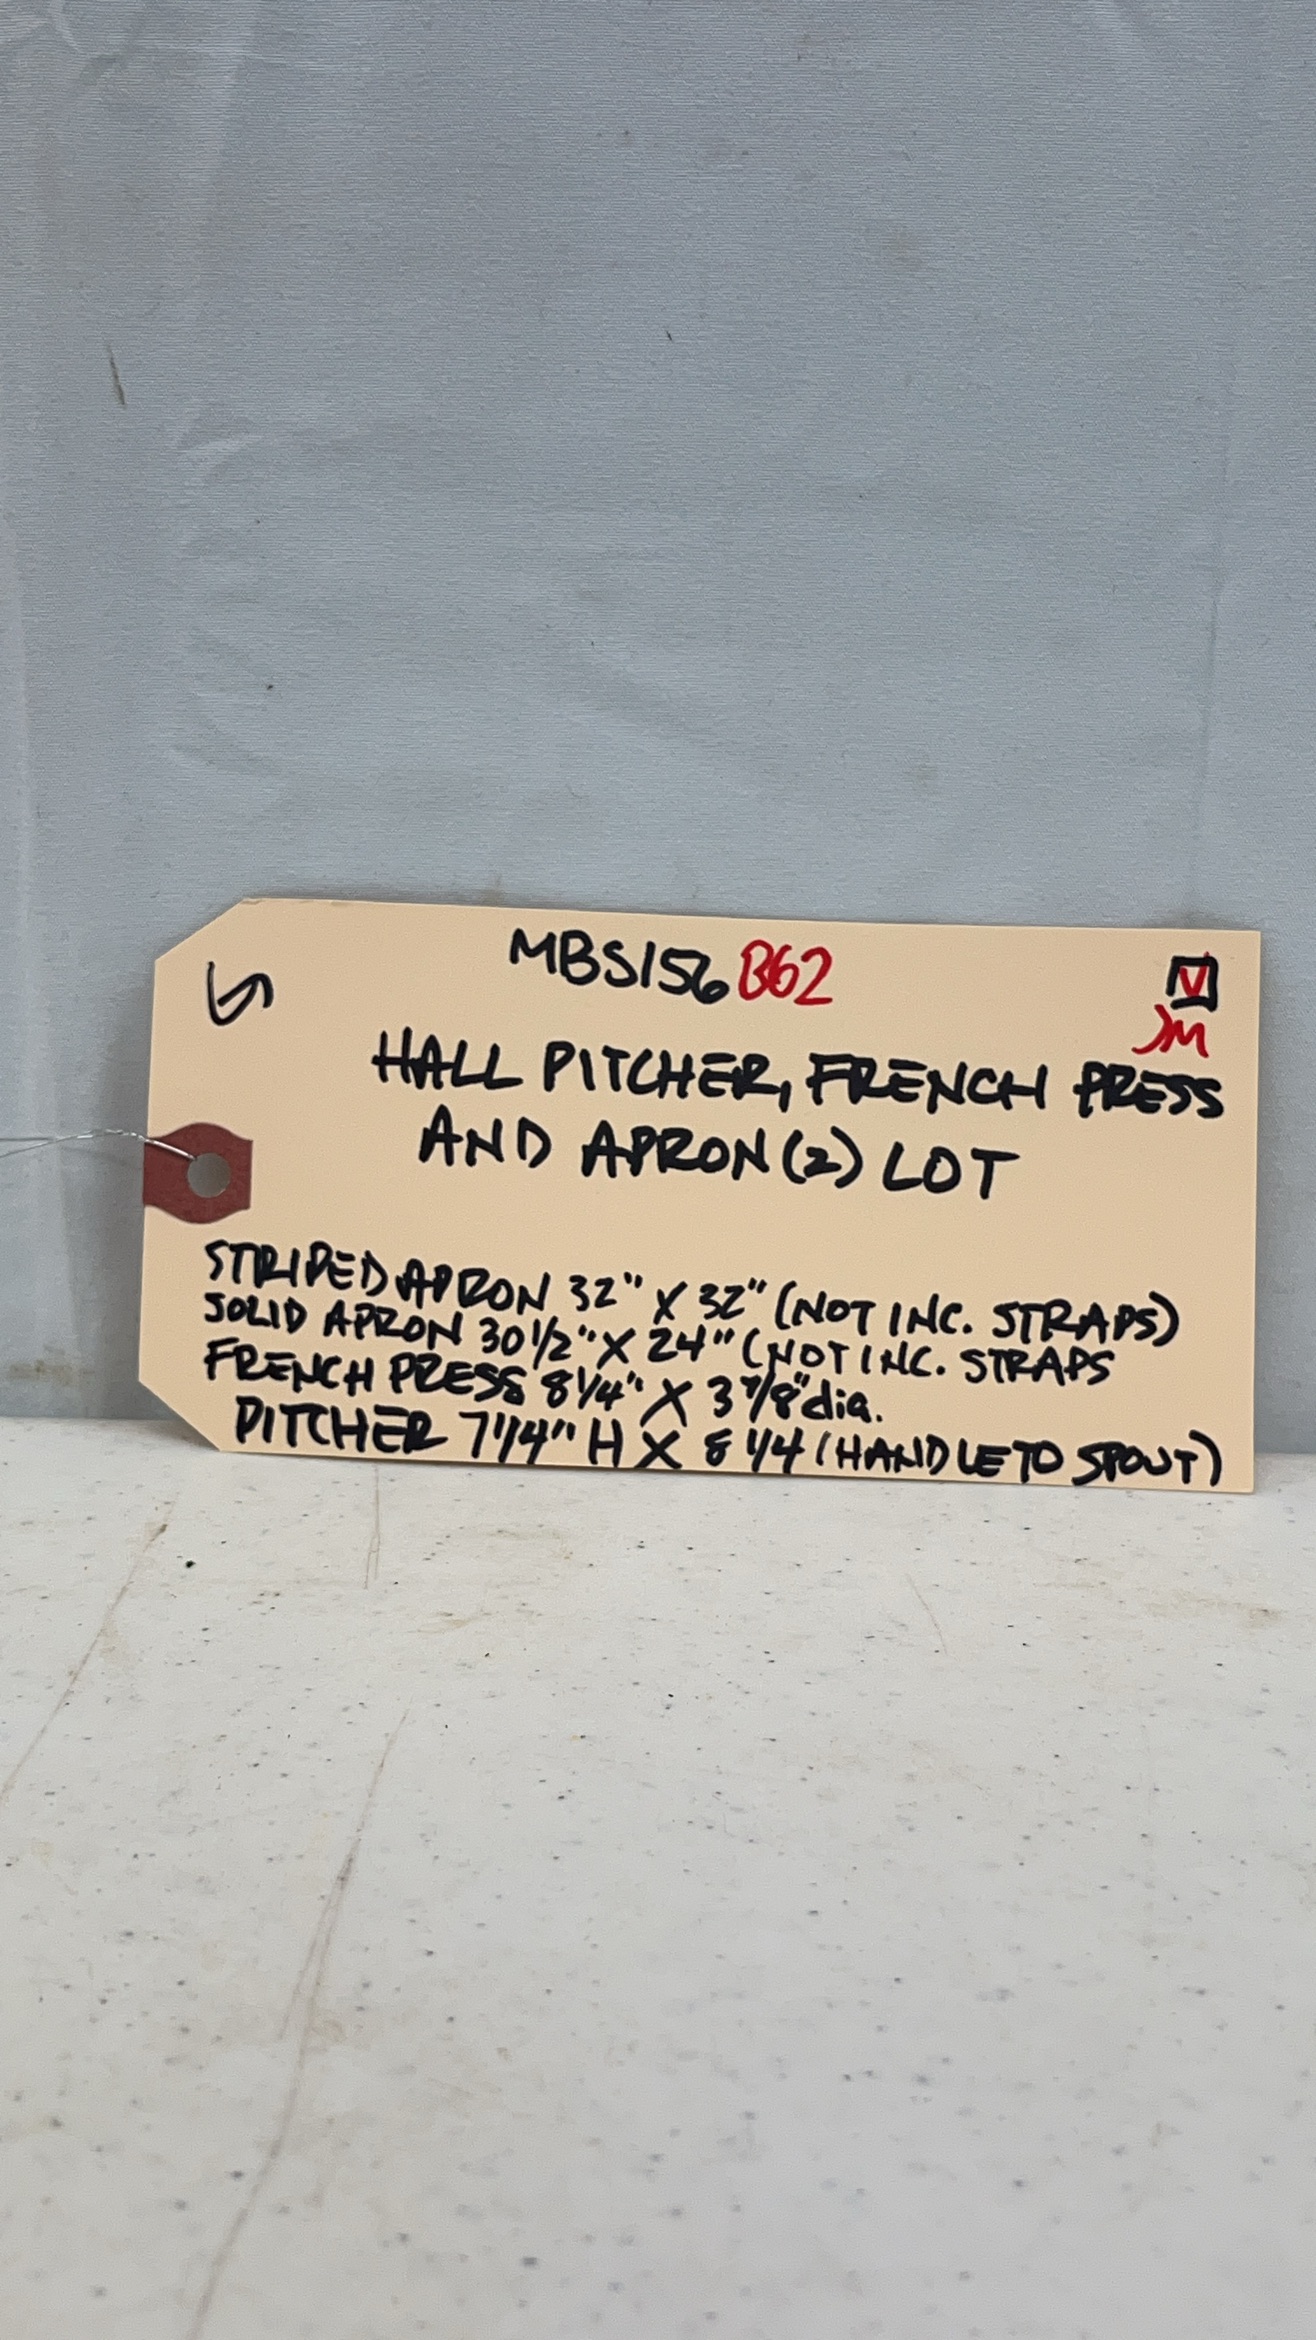 MBS156 B62
V
JM
HALL PITCHER, FRENCH PRESS
AND APRON (2) LOT
STRIPED APRON 32" X 32" (NOT INC. STRAPS)
SOLID APRON 30 1/2" X 24" (NOT INC. STRAPS
FRENCH PRESS 8 1/4" X 3 7/8" dia.
PITCHER 7 1/4" H X 8 1/4 (HANDLE TO SPOUT)